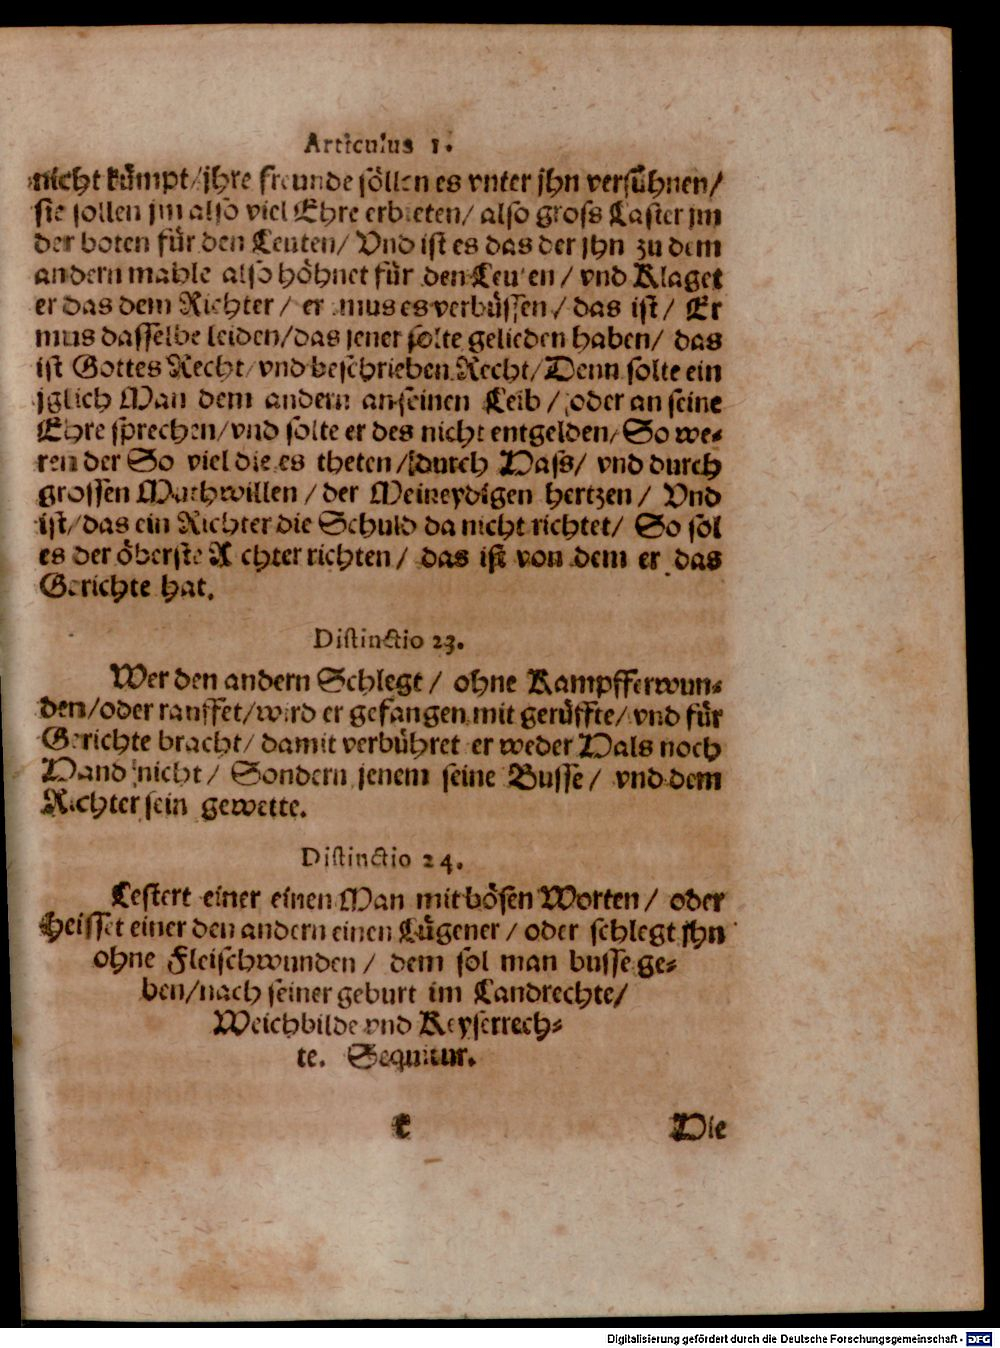 Articulus 1.
nicht kümpt/jhre freunde söllen es vnter jhn versühnen/
sie sollen jm also viel Ehre erbieten/ also gross Laster jm
der boten für den Leuten/ Vnd ist es das der jhn zu dem
andern mahle also höhnet für den Leuten/ vnd Klaget
er das dem Richter/ er mus es verbüssen/ das ist/ Er
mus dasselbe leiden/das jener solte gelieden haben/ das
ist Gottes Recht/vnd beschrieben Recht/Denn solte ein
jglich Man dem andern an seinen Leib/ oder an seine
Ehre sprechen/vnd solte er des nicht entgelden/ So we-
ren der So viel die es theten/ durch Hass/ vnd durch
grossen Muthwillen/ der Meineydigen hertzen/ Vnd
ist/das ein Richter die Schuld da nicht richtet/ So sol
es der öberste Richter richten/ das ist von dem er das
Gerichte hat.
Distinctio 23.
Wer den andern Schlegt/ ohne Kampfferwun-
den/oder rauffet/wird er gefangen mit gerüffte/ vnd für
Gerichte bracht/ damit verbühret er weder Hals noch
Hand nicht/ Sondern jenem seine Busse/ vnd dem
Richter sein gewette.
Distinctio 24.
Lestert einer einen Man mit bösen Worten/ oder
Heisset einer den andern einen Lügener/ oder schlegt jhn
ohne Fleischwunden/ dem sol man busse ge-
ben/nach seiner geburt im Landrechte/
Weichbilde vnd Keyserrech-
te. Sequitur.
k Die
Digitalisierung gefördert durch die Deutsche Forschungsgemeinschaft - DFG